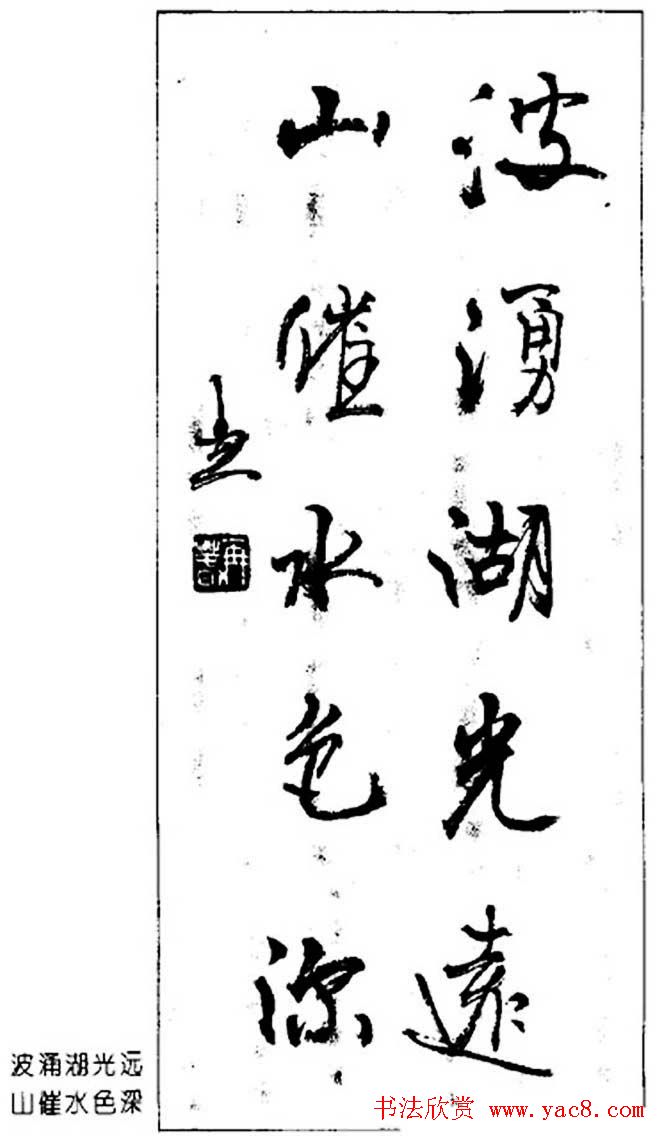 波湧湖光遠
山催水色深
波涌湖光远
山催水色深
书法欣赏 www.yac8.com